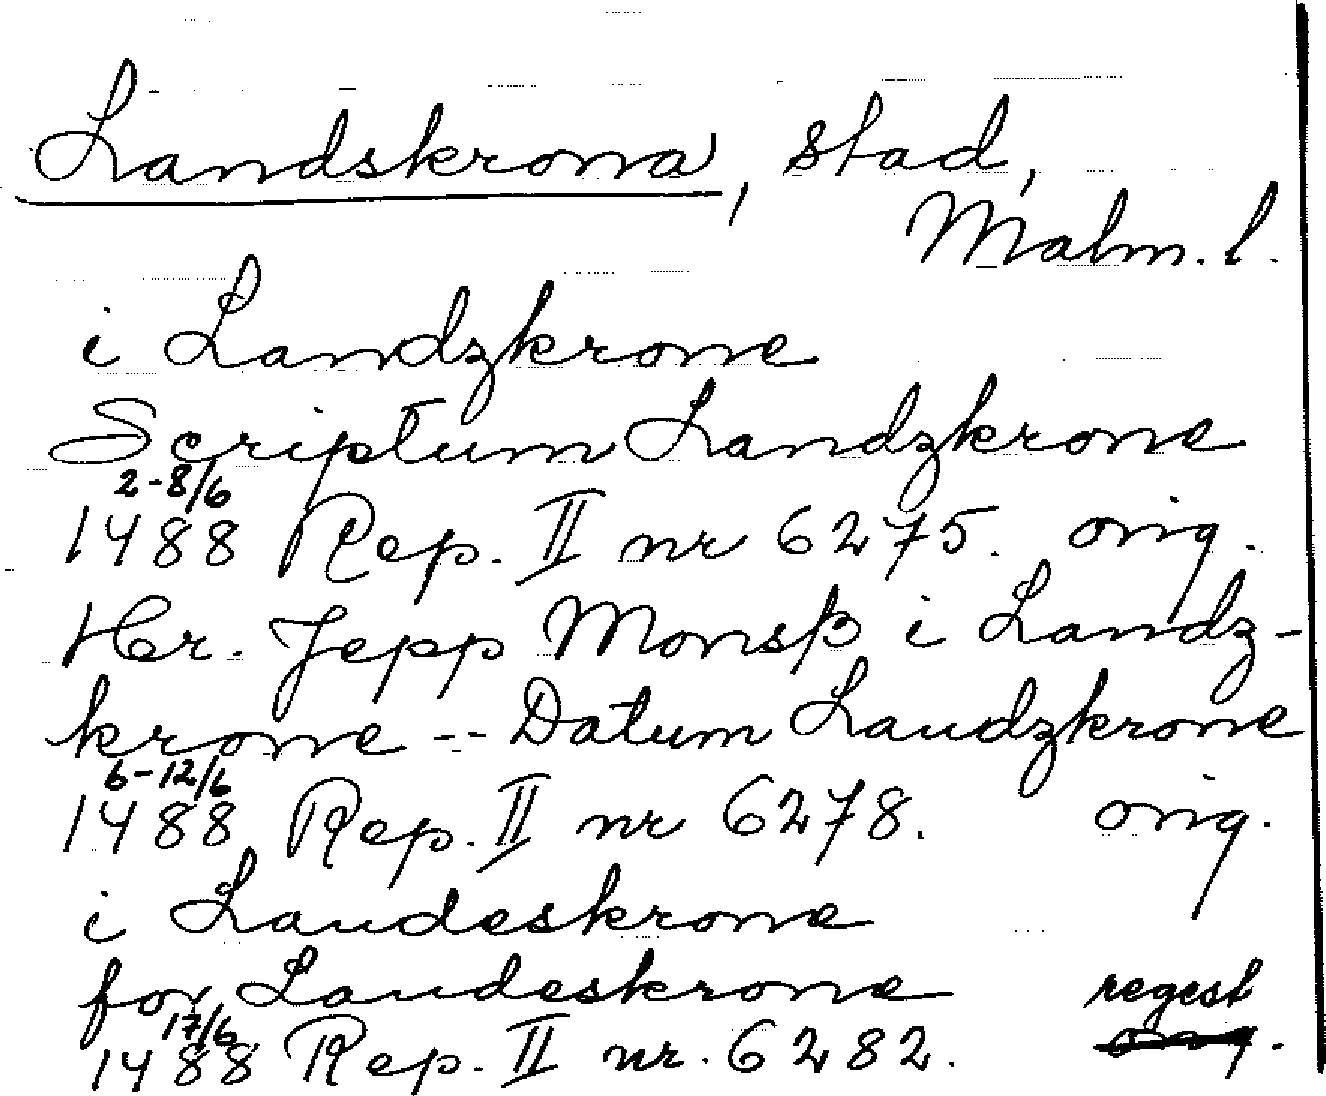 Landskrona, stad,
Malm. l.
i Landzkrone
Scriptum Landzkrone
2-8/6
1488 Rep. II nr 6275. orig.
Hr. Jepp Monsß i Landz-
krone -- Datum Landzkrone
6-12/6
1488 Rep. II nr 6278. orig.
i Landeskrone
for Landeskrone regest
17/6
1488 Rep. II nr. 6282. orig.